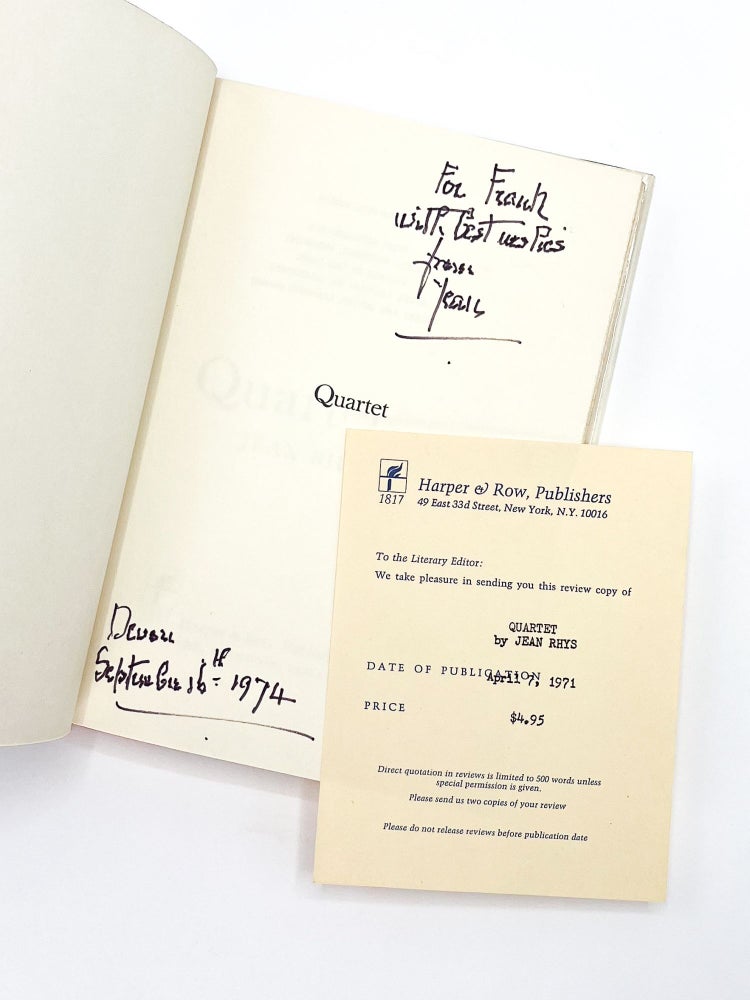 For Frank
with best wishes
from
Jean
Quartet
Devon
September 16th 1974
1817
Harper & Row, Publishers
49 East 33d Street, New York, N.Y. 10016
To the Literary Editor:
We take pleasure in sending you this review copy of
QUARTET
by JEAN RHYS
DATE OF PUBLICATION April 7, 1971
PRICE $4.95
Direct quotation in reviews is limited to 500 words unless
special permission is given.
Please send us two copies of your review
Please do not release reviews before publication date